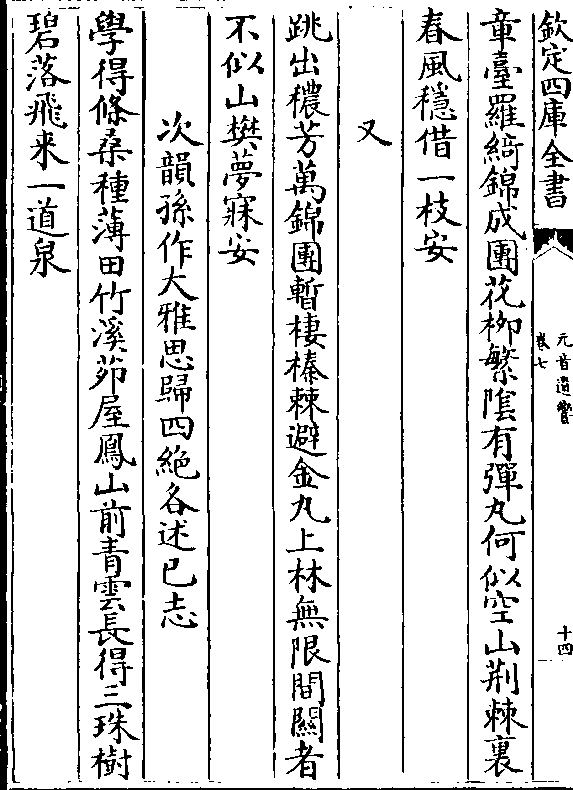 欽定四庫全書
元音遺響
卷七
十四
章臺羅綺錦成團花柳繁陰有彈丸何似空山荆棘裏
春風穩借一枝安
又
跳出穠芳萬錦團暫棲榛棘避金丸上林無限間關者
不似山樊夢寐安
次韻孫作大雅思歸四絶各述已志
學得條桑種薄田竹溪茆屋鳳山前青雲長得三珠樹
碧落飛来一道泉